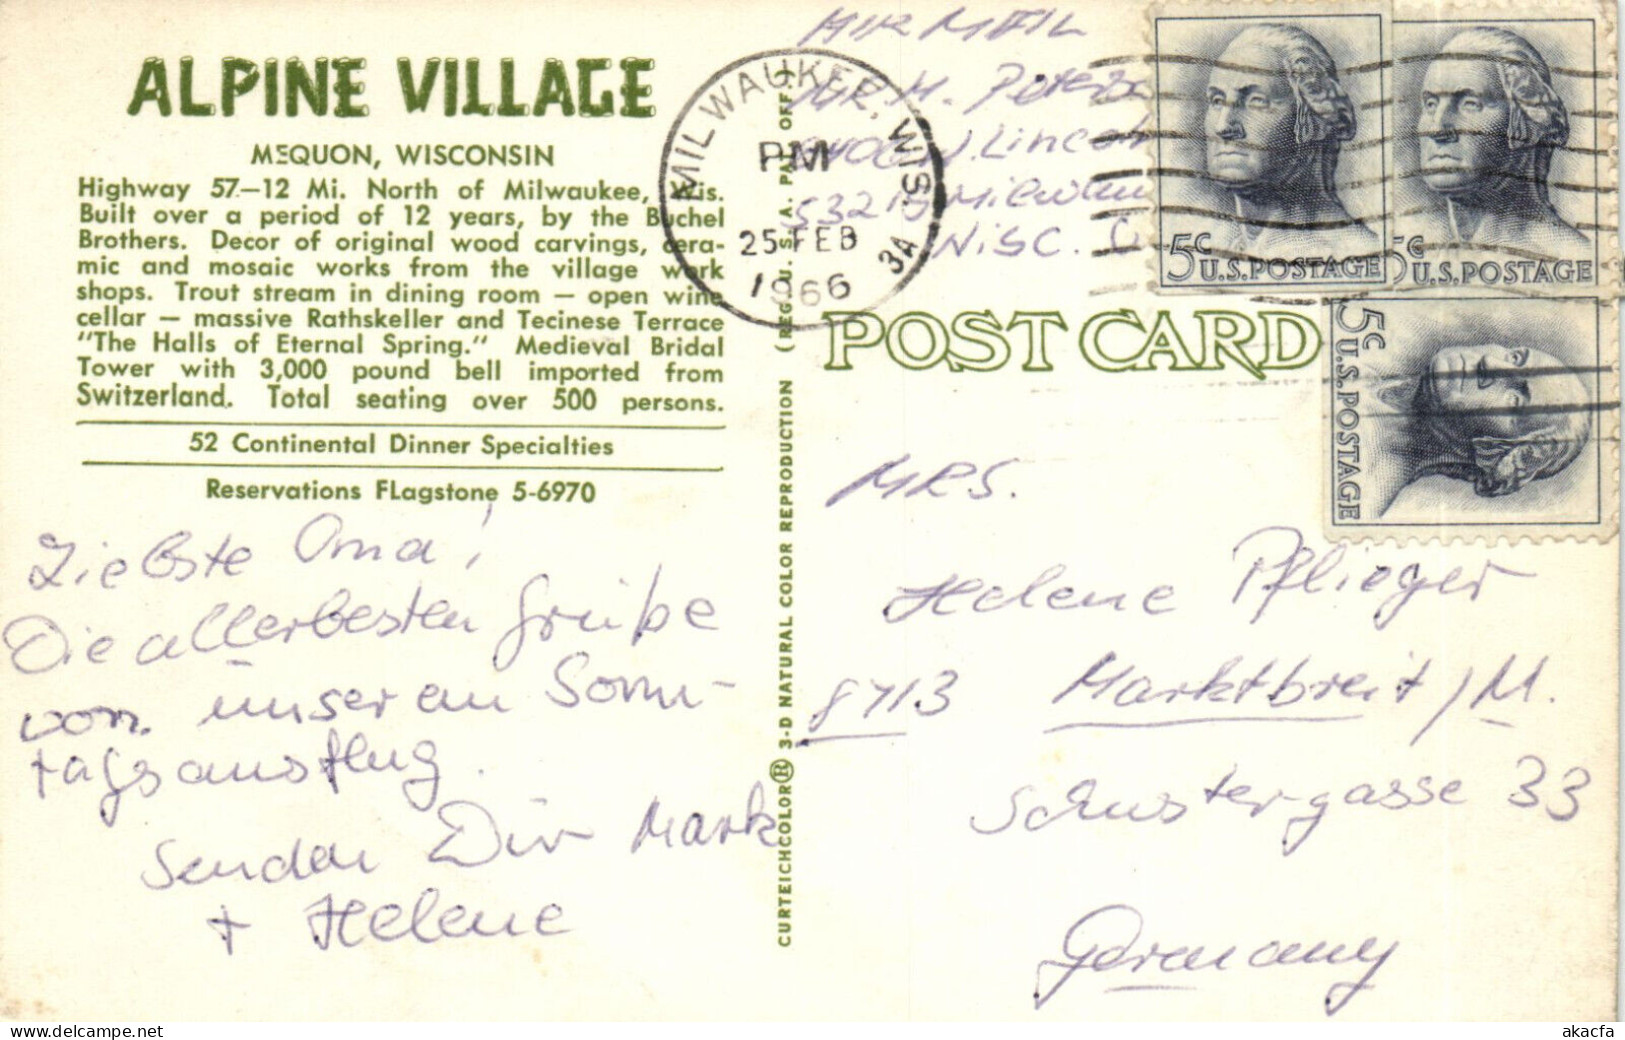 ALPINE VILLAGE
MEQUON, WISCONSIN
Highway 57—12 Mi. North of Milwaukee, Wis.
Built over a period of 12 years, by the Buchel
Brothers. Decor of original wood carvings, cera-
mic and mosaic works from the village work
shops. Trout stream in dining room — open wine
cellar — massive Rathskeller and Tecinese Terrace
"The Halls of Eternal Spring." Medieval Bridal
Tower with 3,000 pound bell imported from
Switzerland. Total seating over 500 persons.
52 Continental Dinner Specialties
Reservations FLagstone 5-6970
Liebste Oma!
Die allerbesten Grüße
von unserem Sonn-
tagsausflug.
Senden Dir Mark
+ Helene
CURTEICHCOLOR® 3-D NATURAL COLOR REPRODUCTION (REG. U. S. A. PAT. OFF.)
AIR MAIL
M. Peters
Lincoln
53215
WISC.
MILWAUKEE, WIS.
PM
25 FEB
1966
3A
5c U.S. POSTAGE
5c U.S. POSTAGE
5c U.S. POSTAGE
POST CARD
MRS.
Helene Pflieger
8713 Marktbreit/M.
Schustergasse 33
Germany
akacfa